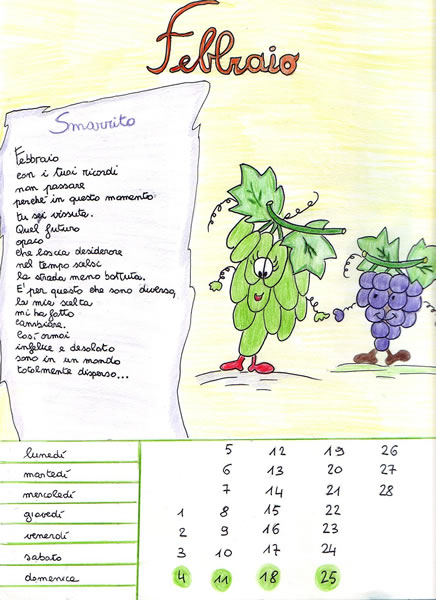 Febbraio
Smarrito
Febbraio
con i tuoi ricordi
non passare
perché in questo momento
tu sei vissuta.
Quel futuro
opaco
che lascia desiderare
nel tempo salsi
la strada meno battuta.
E' per questo che sono diverso,
la mia scelta
mi ha fatto
cambiare.
Così ormai
infelice e desolato
sono in un mondo
totalmente disperso...
lunedì 5 12 19 26
martedì 6 13 20 27
mercoledì 7 14 21 28
giovedì 1 8 15 22
venerdì 2 9 16 23
sabato 3 10 17 24
domenica 4 11 18 25